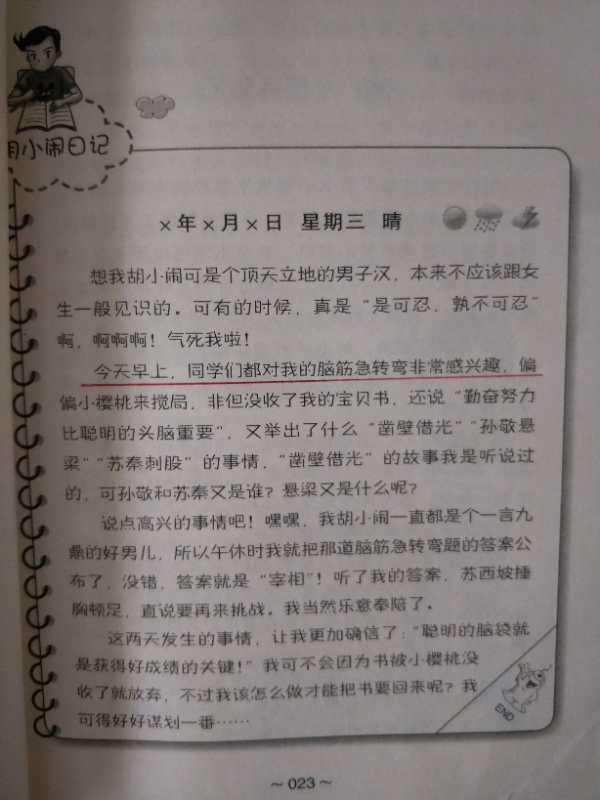 胡小闹日记
×年×月×日 星期三 晴
想我胡小闹可是个顶天立地的男子汉，本来不应该跟女
生一般见识的。可有的时候，真是“是可忍，孰不可忍”
啊，啊啊啊！气死我啦！
今天早上，同学们都对我的脑筋急转弯非常感兴趣，偏
偏小樱桃来搅局，非但没收了我的宝贝书，还说“勤奋努力
比聪明的头脑重要”，又举出了什么“凿壁借光”“孙敬悬
梁”“苏秦刺股”的事情，“凿壁借光”的故事我是听说过
的，可孙敬和苏秦又是谁？悬梁又是什么呢？
说点高兴的事情吧！嘿嘿，我胡小闹一直都是个一言九
鼎的好男儿，所以午休时我就把那道脑筋急转弯题的答案公
布了，没错，答案就是“宰相”！听了我的答案，苏西坡捶
胸顿足，直说要再来挑战。我当然乐意奉陪了。
这两天发生的事情，让我更加确信了：“聪明的脑袋就
是获得好成绩的关键！”我可不会因为书被小樱桃没
收了就放弃，不过我该怎么做才能把书要回来呢？我
可得好好谋划一番……
END
～023～